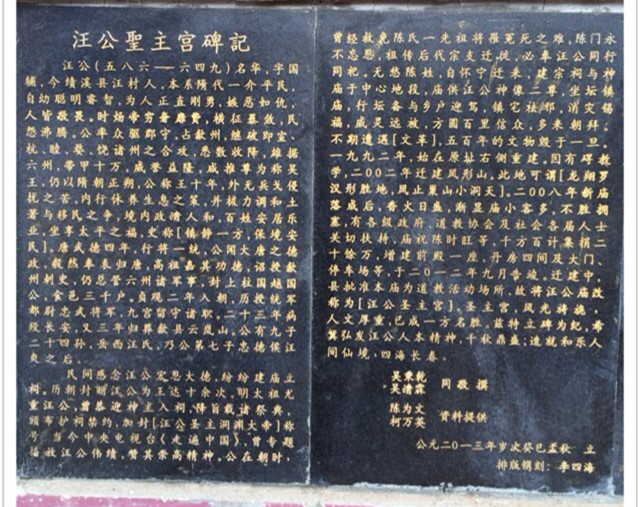 汪公聖主宫碑記
汪公(五八六一六四九)名华,字国
辅,今绩溪县汪村人,本系隋代一介平民,
自幼聪明睿智,为人正直刚勇,嫉恶如仇,
人皆敬畏。时炀帝穷奢糜费,横征暴敛,民
怨沸腾,公率众驱郡守,占歙州,继破即宣、
杭、睦、婺、饶诸州之合攻,悉数收降,雄据
六州,带甲十万,威誉益隆,咸推尊为称吴
王,仍以隋朝正朔,公称王十年,外无兵戈侵
扰之苦,内行休养生息之策,并极力调和土
著与移民之争,境内政清人和,百姓安居乐
业,坐享太平之福,史称[镇静一方,保境安
民],唐武德四年,行将一统,公闻大唐之德
政,毅然奉表归唐,高祖嘉其功德,诏授越歙
州刺史,仍总管六州诸军事,封上柱国越国
公,食邑三千户。贞观二年入朝,历授统军
都尉忠武将军,九宫留守诸职。二十三年病
殁长安,又三年归葬歙县云岚山。公有九子
二十四孙,岳西汪氏,乃公第七子忠德侯汪
爽之后。
民间感念汪公宏恩大德,纷纷建庙立
祠。历朝封赠汪公为王达十余次。明太祖尤
重汪公,曾恭迎神主入祠,降旨载诸祭典,
颁布护祠禁约,加封[汪公圣主洞渊大帝]称
号。当今中央电视台《走遍中国》,曾专题
播放汪公伟绩,赞其崇高精神。公在朝时,
曾经救免陈氏一先祖将罹冤死之难,陈门永
不忘恩,祖传后代宗支迁徙,必奉汪公同行
同祀。无愁陈姓,自怀宁迁来,建宗祠与神
庙于中心地段,庙供汪公神像二尊,坐坛镇
庙,行坛备与乡户迎驾,镇宅祛邪,消灾锡
福。咸灵远被,方圆百里信众,多来朝拜。
不期遭遇[文革],五百年的文物毁于一旦。
一九九二年,始在原址右侧重建。因有碍教
学,二00二年迁建凤形山,此地可谓[龙翔罗
汉形胜地,凤止巢山小洞天]。二00八年新庙
落成后,香火日盛,渐显庙小客多,不胜拥
塞,有各级政府、道教协会及社会各届人士
关切扶持,庙祝陈时旺等,千方百计集撰二
十馀万,增建前殿一座、丹房四间及大门、
停车场等,于二0一二年九月告竣。迁建中,
县批准本庙为道教活动场所,故将汪公庙改
称为[汪公圣主宫]。圣主宫,风光旖旎,
人文厚重,已成一方名胜。兹特立碑为纪,希
冀弘发汪公人本精神,千秋鼎盛;造就和乐人
间仙境,四海长春。
吴秉乾
吴清霖 同敬撰
陈为文
柯万英 资料提供
公元二0一三年岁次癸巳孟秋 立
排版镌刻:李四海